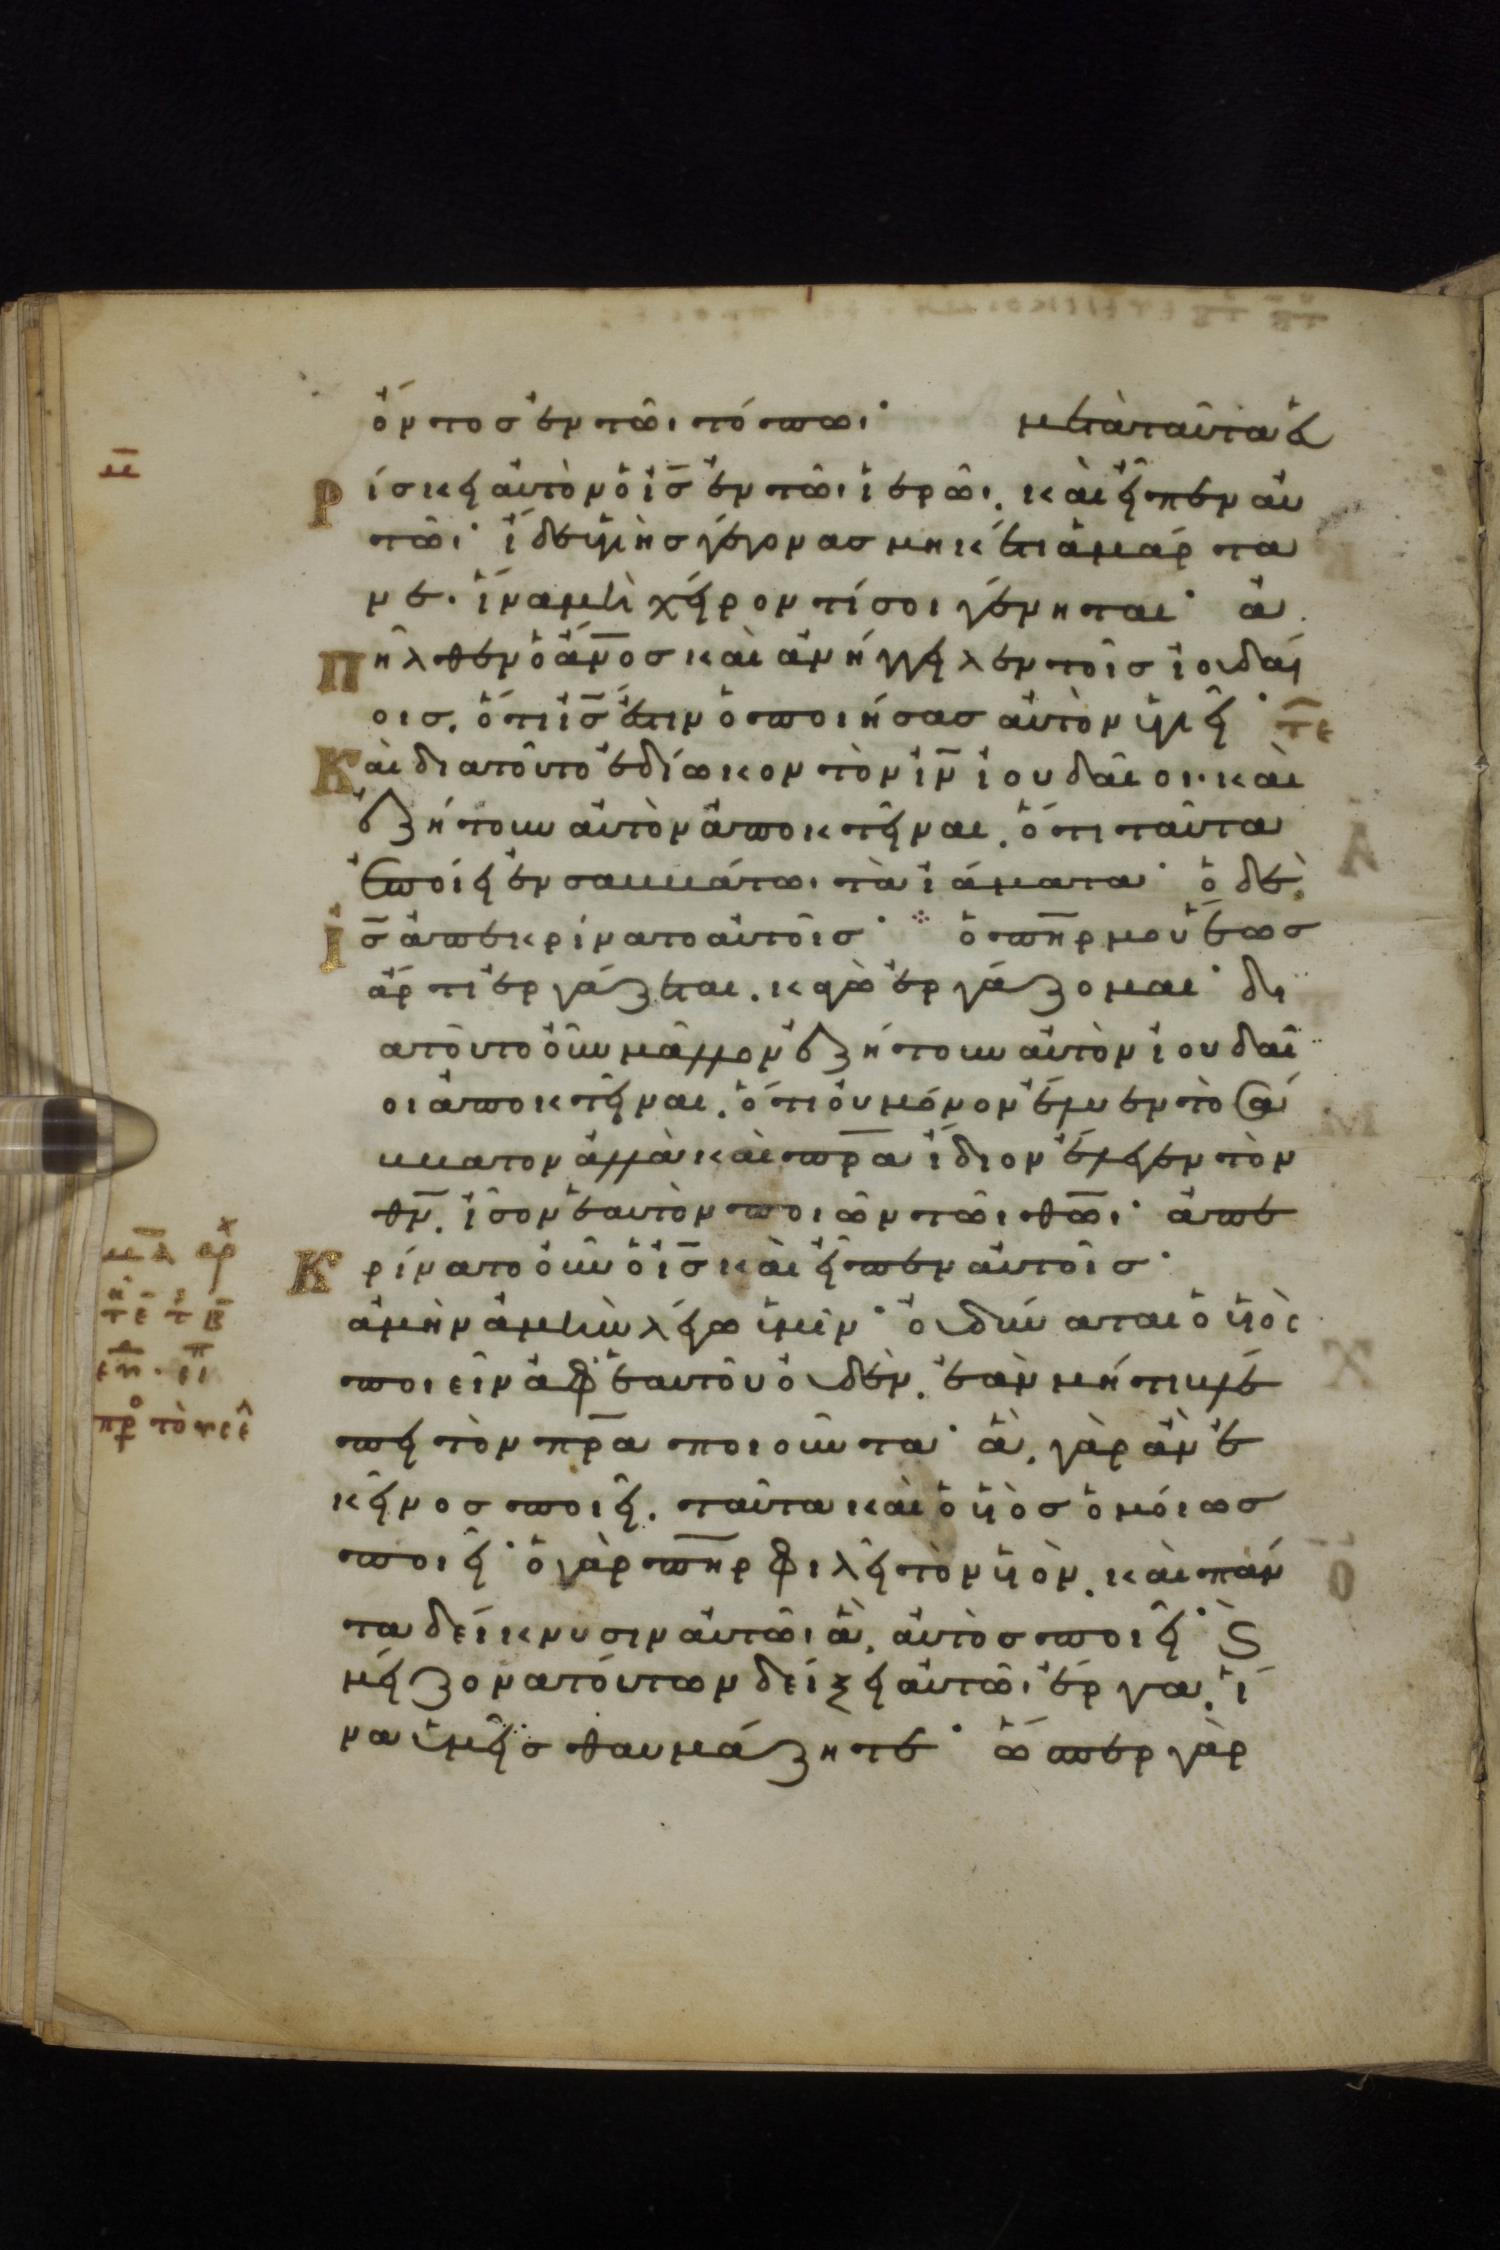 ὄντος ἐν τῶι τόπωι· μετὰ ταῦτα εὑ
ρίσκει αὐτὸν ὁ ἰς̅ ἐν τῶι ἱερῶι. καὶ εἶπεν αυ
τῶι· ἴδε ὑγιὴς γέγονας μηκέτι ἁμάρτα
νε. ἵνα μὴ χεῖρόν τί σοι γένηται· ἀ
πῆλθεν ὁ ἄν̅ος καὶ ἀνήγγειλεν τοῖς ἰουδαί
οις, ὅτι ἰς̅ ἐστιν ὁ ποιήσας αὐτὸν ὑγιῆ· τε̅
Καὶ διατοῦτο ἐδίωκον τὸν ἰν̅ ἰουδαῖοι. καὶ
ἐζήτουν αὐτὸν ἀποκτεῖναι, ὅτι ταῦτα
ἐποίει ἐν σαββάτωι τὰ ἰάματα· ὁ δὲ
ἰς̅ ἀπεκρίνατο αὐτοῖς· ὁ πη̅ρ μου ἕως
ἄρτι ἐργάζεται. κἀγὼ ἐργάζομαι· δι
ατοῦτο οὖν μᾶλλον ἐζήτουν αὐτὸν ἰουδαῖ
οι ἀποκτεῖναι, ὅτι οὐ μόνον ἔλυεν τὸ σά
ββατον ἀλλὰ καὶ πρ̅α ἴδιον ἔλεγεν τὸν
θν̅, ἴσον ἑαυτὸν ποιῶν τῶι θω̅ι· ἀπε
κρίνατο οὖν ὁ ἰς̅ καὶ εἶπεν αὐτοῖς·
ἀμὴν ἀμὴν λέγω ὑμῖν· οὐ δύναται ὁ ὑὸς
ποιεῖν ἀφ' ἑαυτοῦ οὐδέν, ἐὰν μή τι βλέ
πει τὸν πρ̅α ποιοῦντα· ἃ γὰρ ἂν ἐ
κεῖνος ποιεῖ. ταῦτα καὶ ὁ ὑὸς ὁμοίως
ποιεῖ· ὁ γὰρ πη̅ρ φιλεῖ τὸν ὑὸν, καὶ πάν
τα δείκνυσιν αὐτῶι ἃ αὐτὸς ποιεῖ· ϗ
μείζονα τούτων δείξει αὐτῶι ἔργα, ἵ
να ὑμεῖς θαυμάζητε· ὥσπερ γὰρ